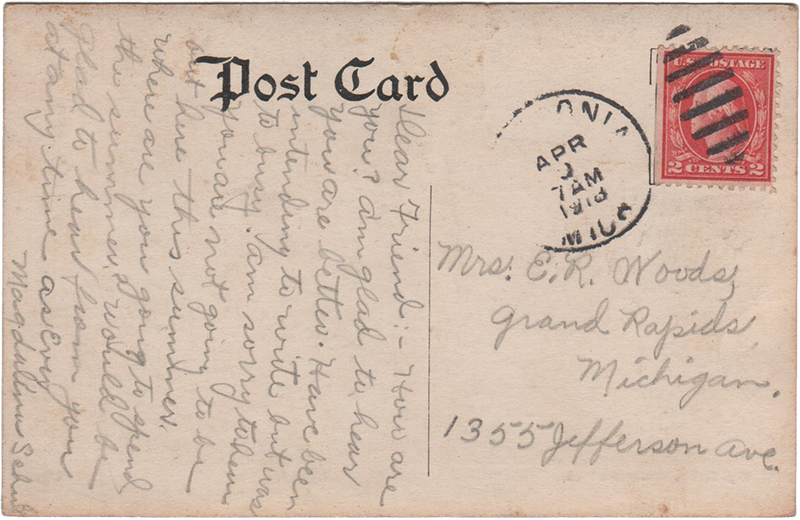 Post Card
U.S. POSTAGE
2 CENTS 2
ONIA
APR
7 AM
1918
MICH
Dear Friend:- How are
you? Am glad to hear
you are better. Have been
intending to write but was
to busy. Am sorry to hear
you are not going to be
out here this summer.
where are you going to spend
the summer. I would be
glad to hear from you
at any time as ever
Magdalena
Mrs. E. R. Woods,
Grand Rapids,
Michigan.
1355 Jefferson Ave.